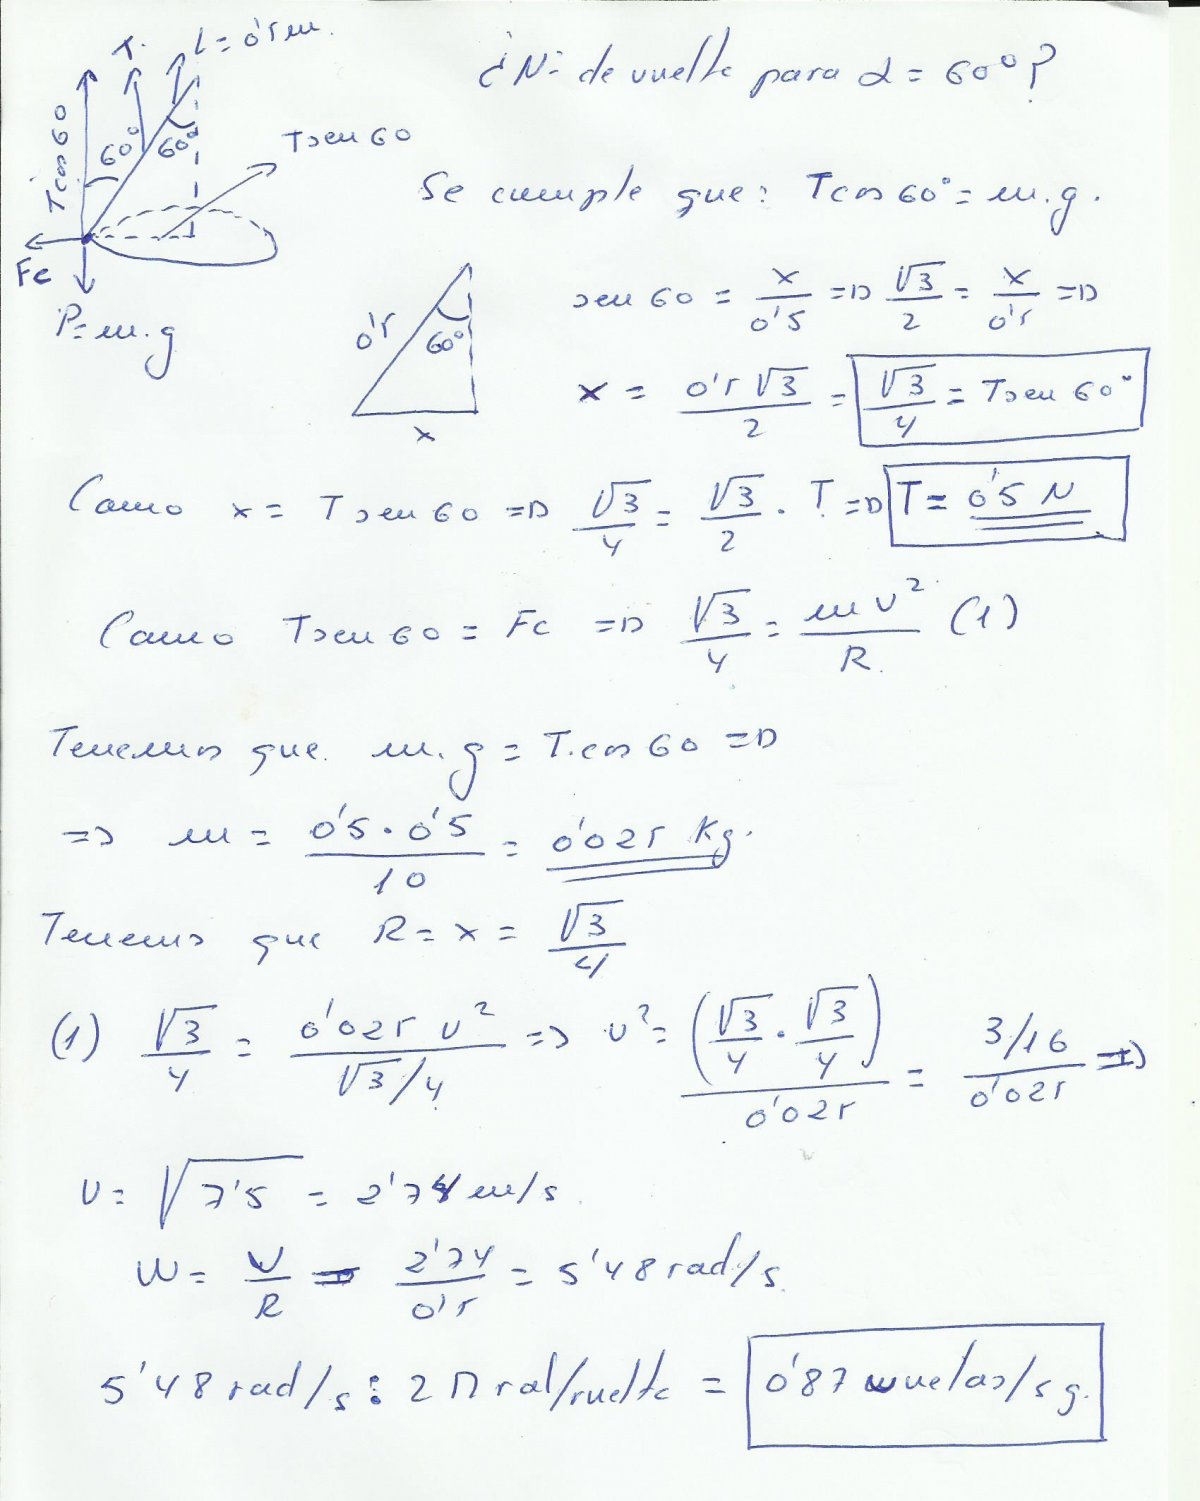 T.
L = 0'5 m.
¿Nº de vuelta para α = 60º?
T cos 60
60º
60º
T sen 60
Se cumple que: T cos 60º = m.g.
Fc
P = m.g
0'5
60º
x
sen 60 = x/0'5 => √3/2 = x/0'5 =>
x = 0'5 √3/2 = √3/4 = T sen 60º
Como x = T sen 60 => √3/4 = √3/2 . T => T = 0'5 N
Como T sen 60 = Fc => √3/4 = m v²/R (1)
Tenemos que m.g = T. cos 60 =>
=> m = 0'5 . 0'5/10 = 0'025 Kg.
Tenemos que R = x = √3/4
(1) √3/4 = 0'025 v²/√3/4 => v² = (√3/4 . √3/4)/0'025 = 3/16/0'025 =>
v = √7'5 = 2'74 m/s.
W = v/R => 2'74/0'5 = 5'48 rad/s.
5'48 rad/s : 2 π rad/vuelta = 0'87 vueltas/sg.